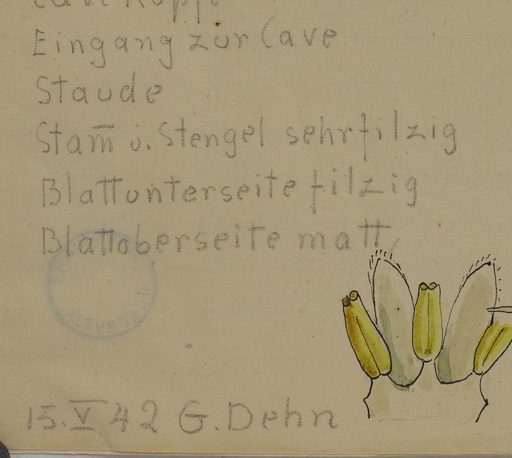 Eingang zur Cave
Staude
Stam̅ u. Stengel sehr filzig
Blattunterseite filzig
Blattoberseite matt,
15. V 42 G. Dehn